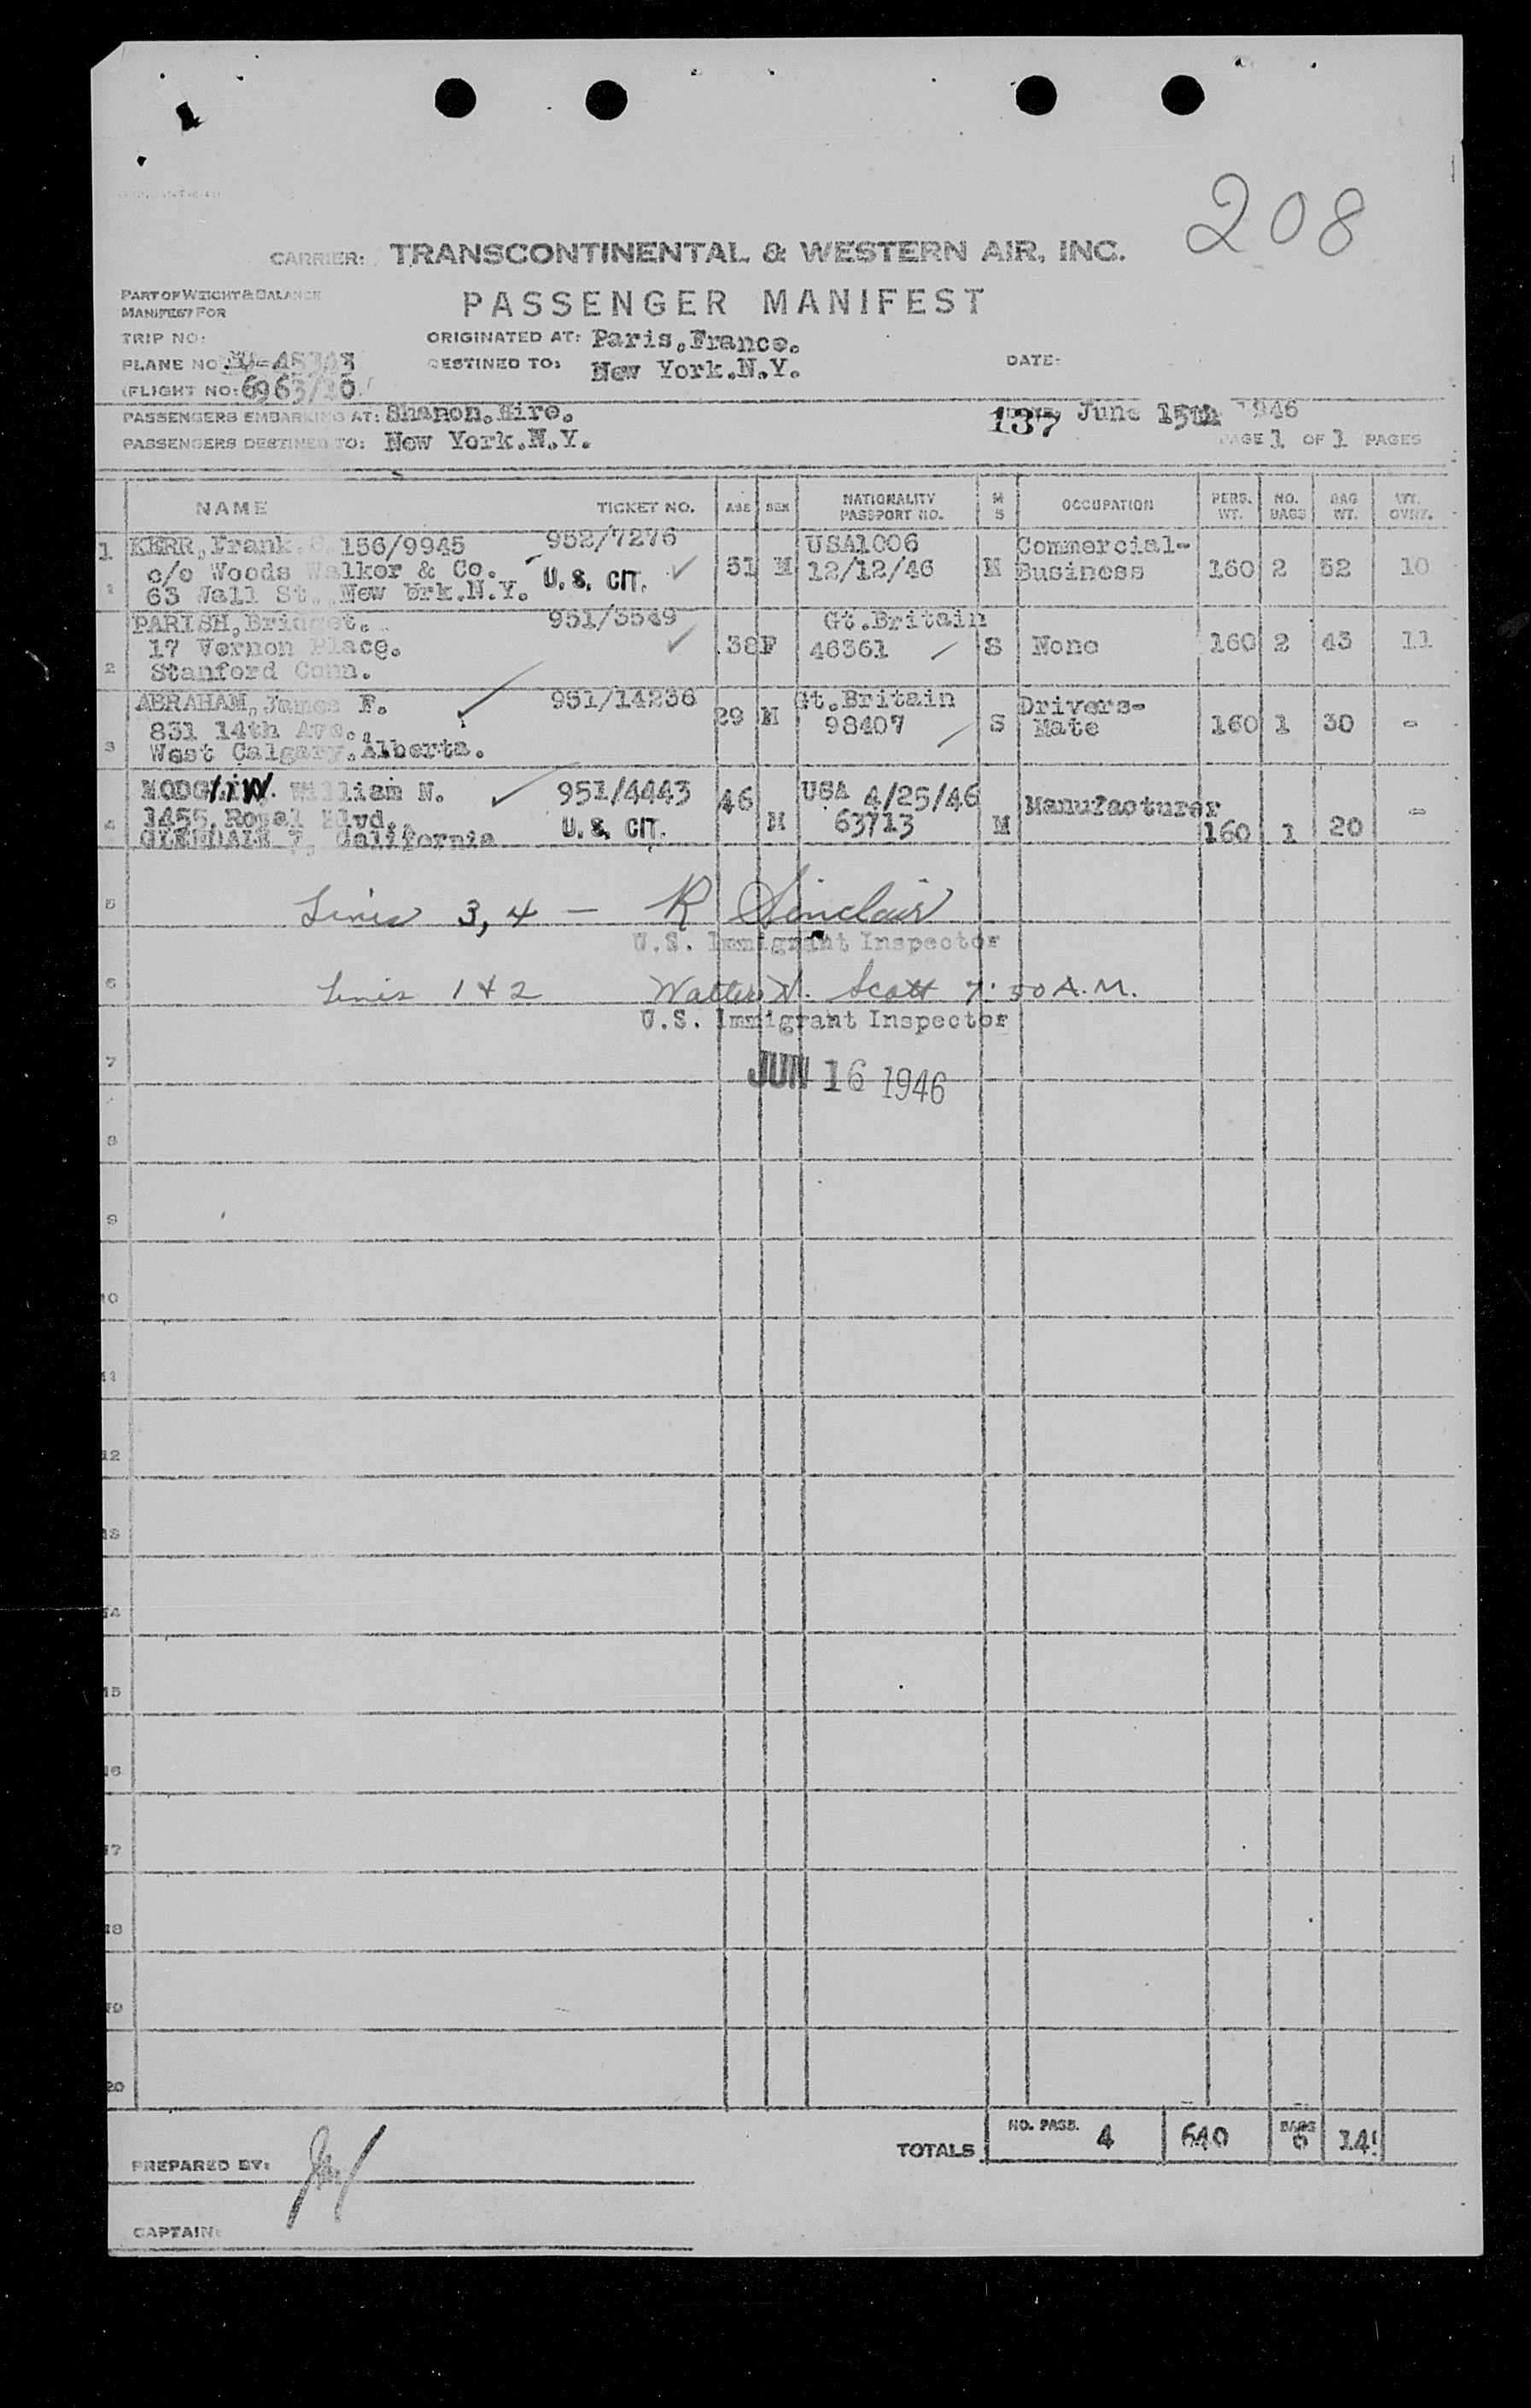 208
CARRIER: TRANSCONTINENTAL & WESTERN AIR, INC.
PART OF WEIGHT & BALANCE
MANIFEST FOR
PASSENGER MANIFEST
TRIP NO:
ORIGINATED AT: Paris.France.
PLANE NO.
DESTINED TO: New York.N.Y.
DATE:
FLIGHT NO:
PASSENGERS EMBARKING AT: Shanon.Eire.
137 June 15th 1946
PASSENGERS DESTINED TO: New York.N.Y.
PAGE 1 OF 1 PAGES
NAME TICKET NO. AGE SEX NATIONALITY PASSPORT NO. M S OCCUPATION PERS. WT. NO. BAGS BAG WT. WT. OVWT.
1 KERR,Frank. 156/9945 952/7276 USA1006 Commercial-
c/o Woods Walker & Co. U. S. CIT. 51 M 12/12/46 M Business 160 2 52 10
1 63 Wall St. New York.N.Y.
PARISH,Bridget. 951/3549 Gt.Britain
17 Vernon Place. 38 F 46361 S None 160 2 43 11
2 Stanford Conn.
ABRAHAM,James F. 951/14236 29 M Gt.Britain Drivers-
831 14th Ave., 98407 S Mate 160 1 30 -
3 West Calgary.Alberta.
William N. 951/4443 46 USA 4/25/46 Manufacturer -
1455 Royal Blvd. U. S. CIT. M 63713 M 160 1 20
4 GLENDALE 7, California
5 Lines 3, 4 — R Sinclair
U.S. Immigrant Inspector
6 Lines 1 & 2 Walter W. Scott 7:50 A.M.
U.S. Immigrant Inspector
7 JUN 16 1946
8
9
10
11
12
13
14
15
16
17
18
19
20
TOTALS NO. PASS. 4 640 BAGS 6 145
PREPARED BY:
CAPTAIN: